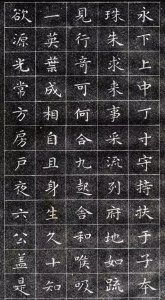 永下上中丁寸守持扶于子夲
珠朱求来事采流列府地如疏
見行奇可何合九起舍和喉吸
一英葉成相自且身生久十知
欲源光常方房戶夜六公蓋是